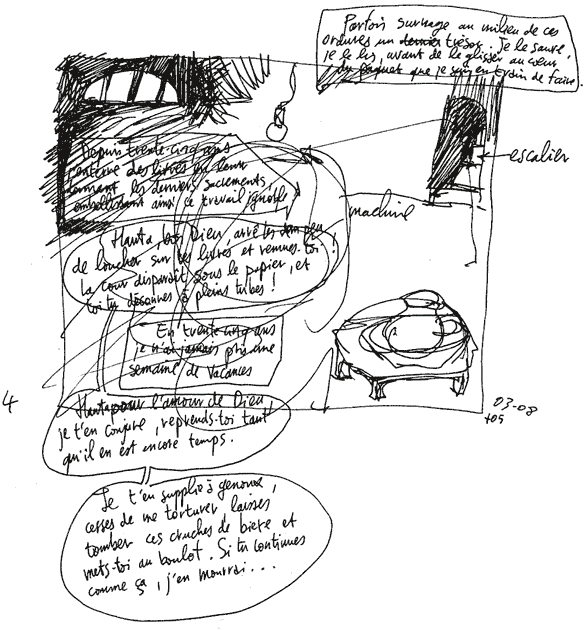 Parfois surnage au milieu de ces
ordures un dernier trésor. Je le sauve,
je le lis, avant de le glisser au cœur
du paquet que je suis en train de faire.
escalier
Depuis trente-cinq ans
j'enterre des livres en leur
donnant les derniers sacrements,
embellissant ainsi ce travail ignoble
machine
Hanta, bon Dieu, arrête un peu
de loucher sur tes livres et remues-toi !
la cour disparaît sous le papier, et
toi tu déconnes à pleins tubes !
En trente-cinq ans
je n'ai jamais pris une
semaine de vacances
4
Hanta pour l'amour de Dieu,
je t'en conjure, reprends-toi tant
qu'il en est encore temps.
03-08
+05
Je t'en supplie à genoux,
cesses de me torturer laisses
tomber ces cruches de bière et
mets-toi au boulot. Si tu continues
comme ça, j'en mourrai...